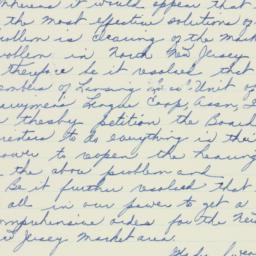 Whereas it would appear that
the most effective solutions of
problem is clearing of the mark
problem in North New Jersey
therefore be it resolved that
members of Lansing "Unit of
Dairymens League Coop, Assn, I
thereby petition the Board
Directors to do everything in their
power to reopen the hearing
the above problem and
Be it further resolved that
all in our power to get a
comprehensive order for the New
New Jersey Market area.